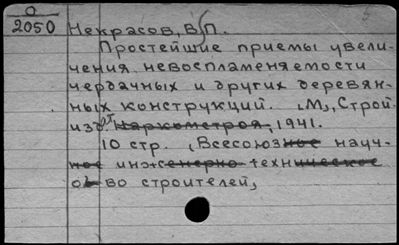 О
2050
Некрасов, В. П.
Простейшие приемы увели-
чения невоспламеняемости
чердачных и других деревян-
ных конструкций. М., Строй-
изд. Наркомстроя, 1941.
10 стр. (Всесоюзное науч-
ное инженерно-техническое
о-во строителей)